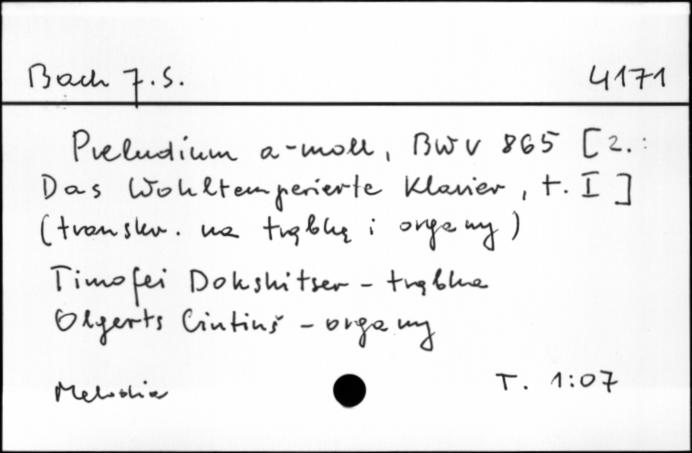 Bach J.S. 4171
Preludium a-moll, BWV 865 [z.:
Das Wohltemperierte Klavier, t. I]
(transkr. na trąbkę i organy)
Timofei Dokshitser - trąbka
Olgerts Cintiņš - organy
Melodia T. 1:07